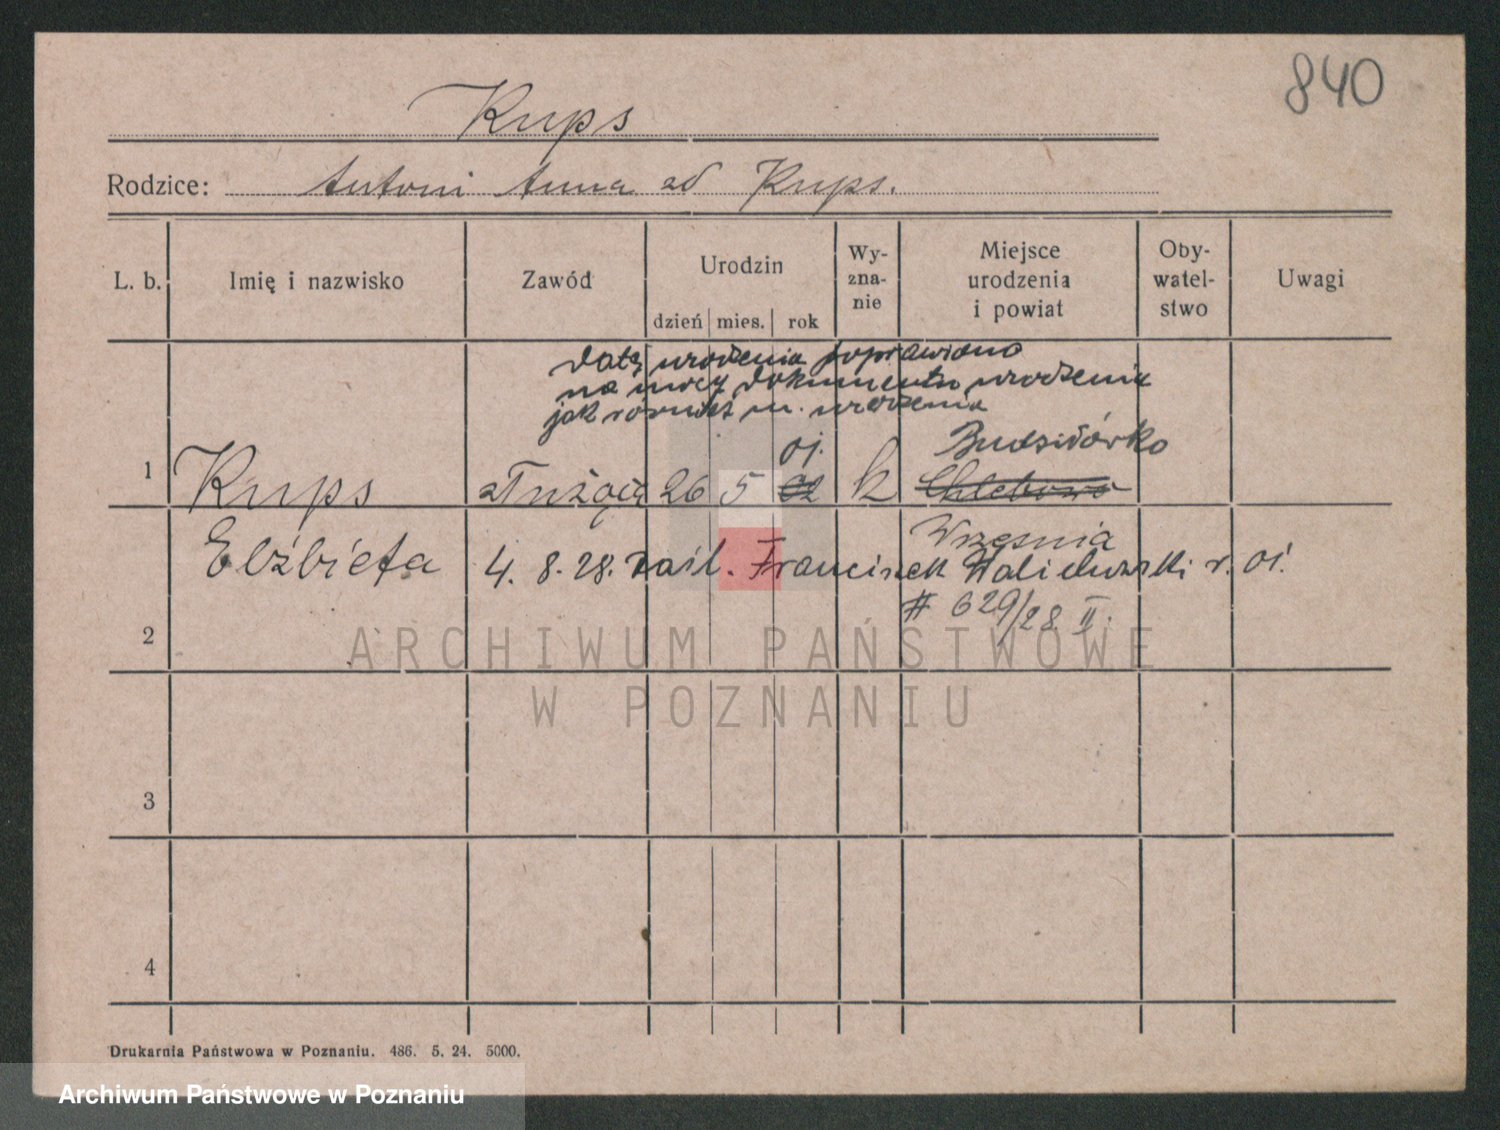 840
Kups
Rodzice: Antoni Anna zd Kups.
L. b. Imię i nazwisko Zawód Urodzin dzień mies. rok Wy-zna-nie Miejsce urodzenia i powiat Oby-watel-stwo Uwagi
Datę urodzenia poprawiono
na mocy dokumentu urodzenia
jak również m. urodzenia
01. Budziłówko
1 Kups służąca 26 5 02 k Chlebowo
Września
Elżbieta 4. 8. 28. zaśl. Franciszek Walichowski r. 01.
# 629/28 II.
2
ARCHIWUM PAŃSTWOWE
W POZNANIU
3
4
Drukarnia Państwowa w Poznaniu. 486. 5. 24. 5000.
Archiwum Państwowe w Poznaniu